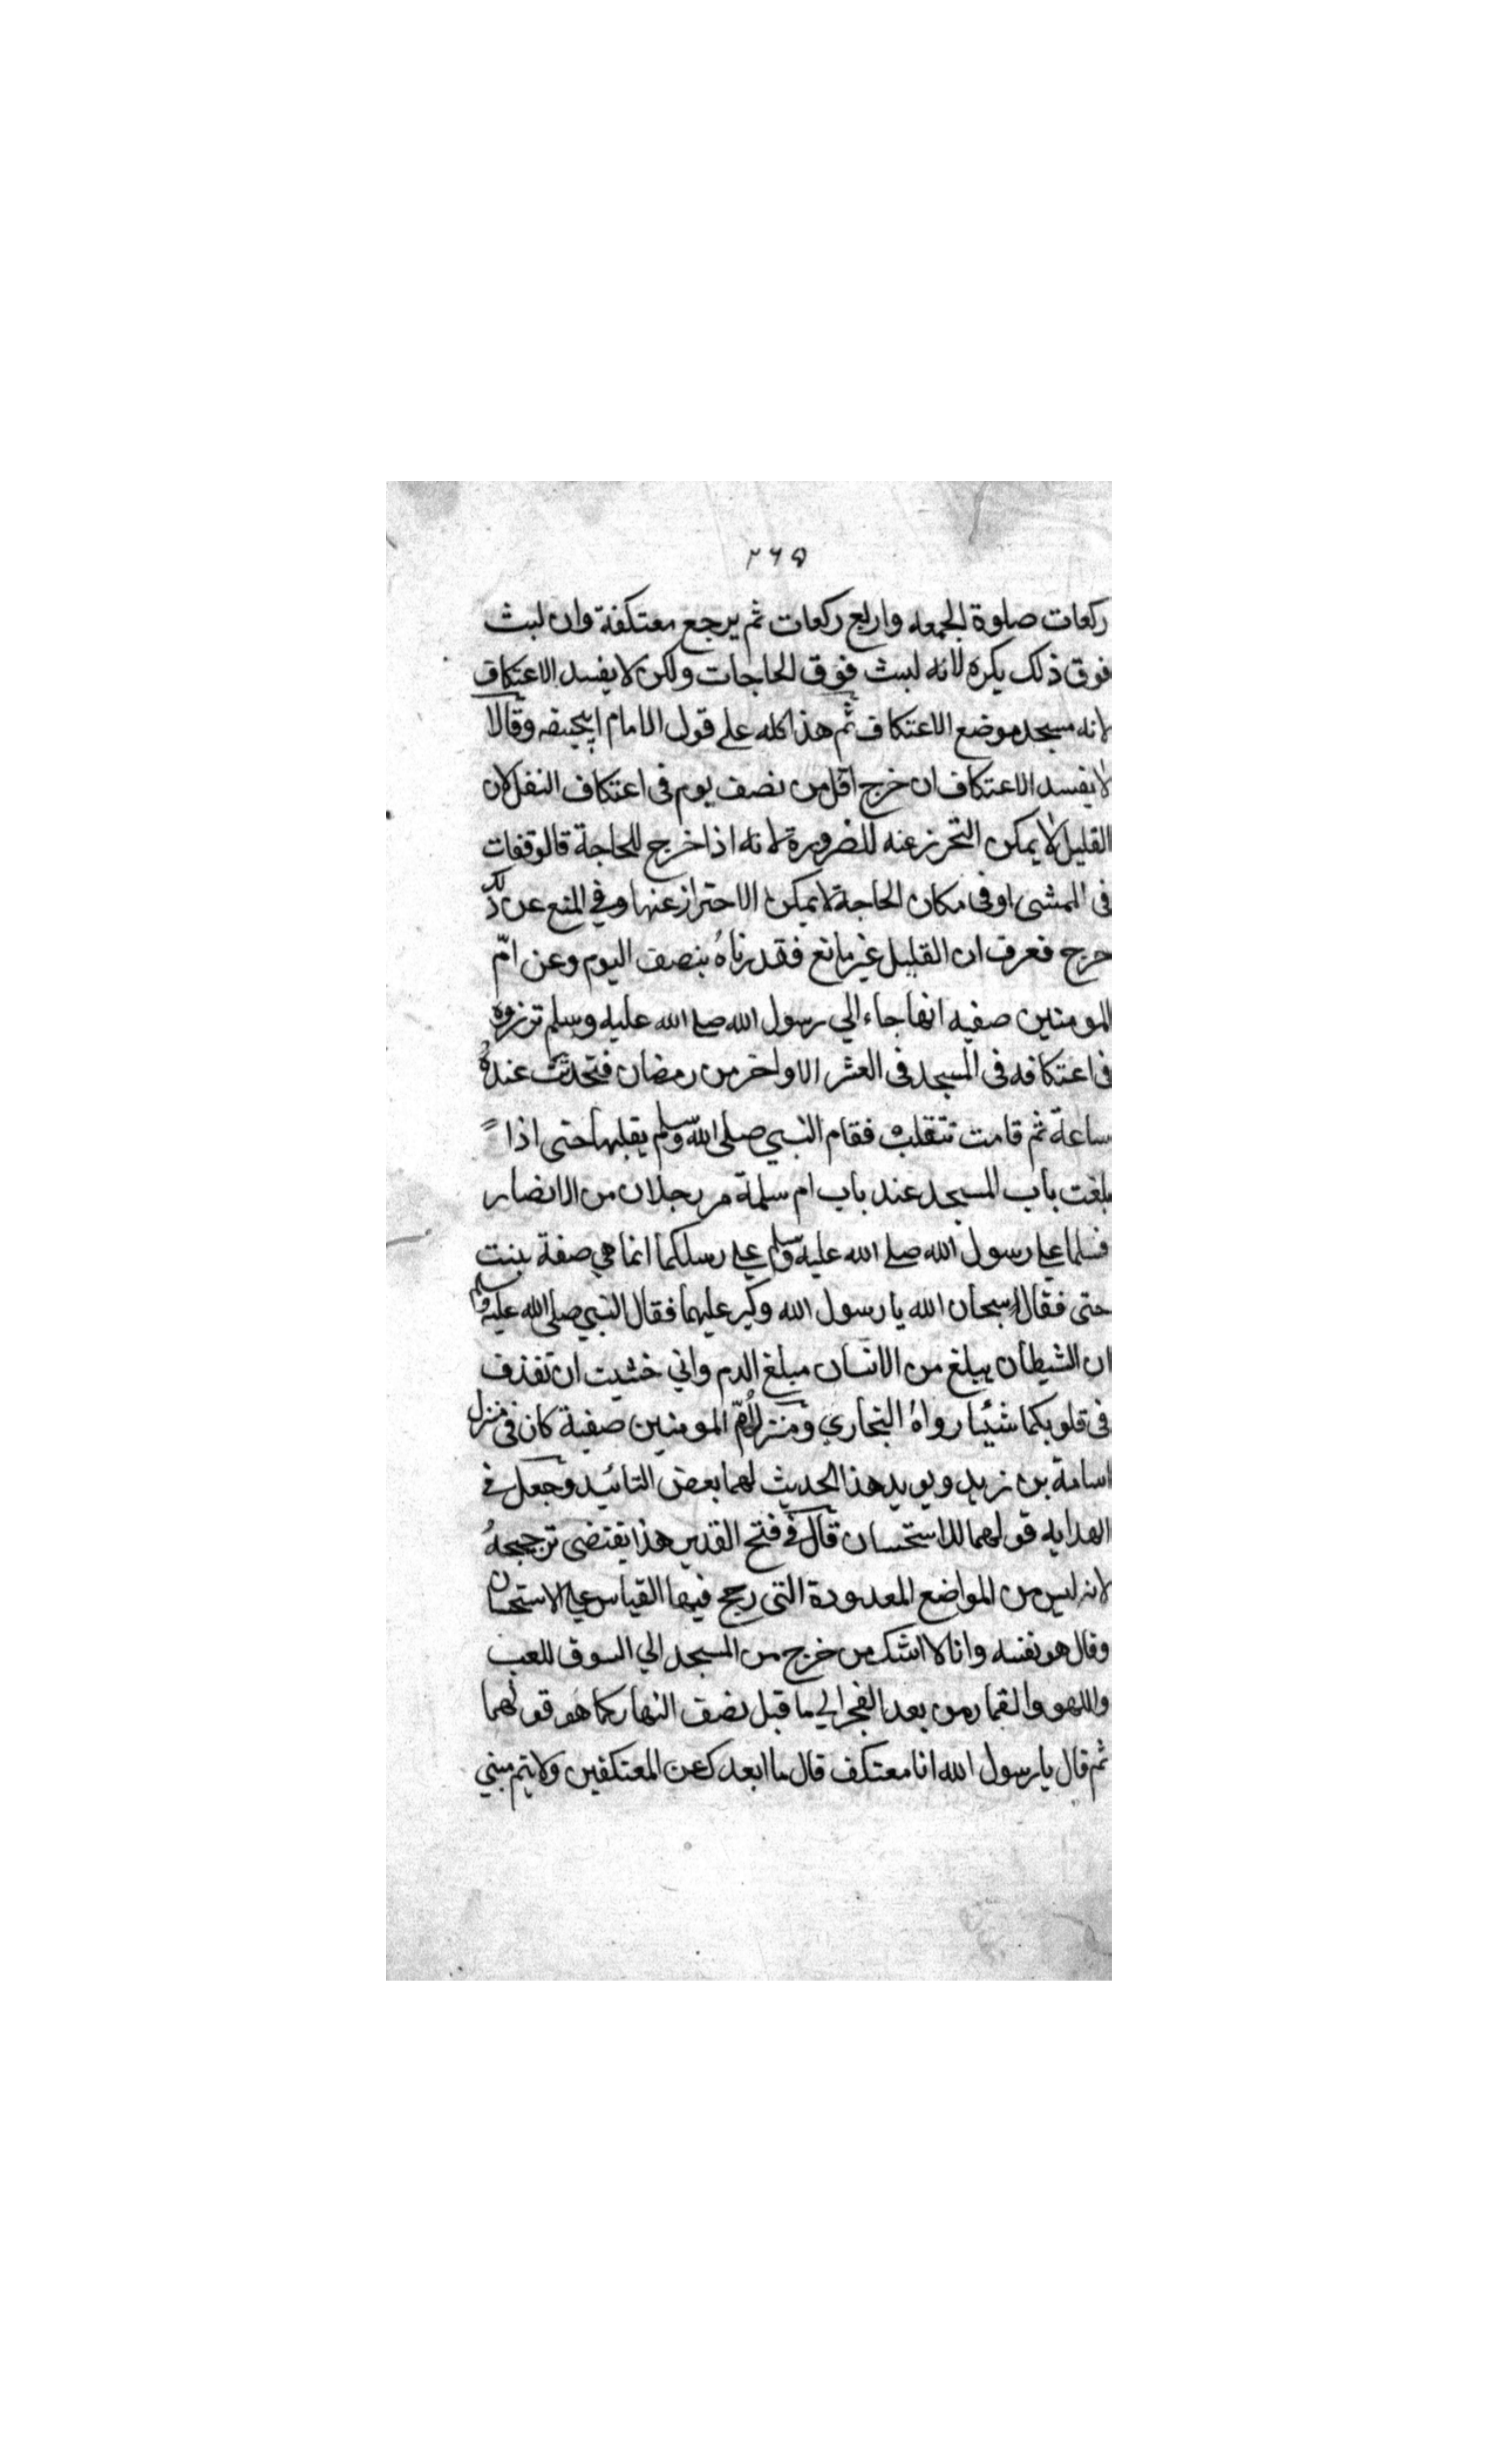 ٢٦٥
ركعات صلوة الجمعه واربع ركعات ثم يرجع معتكفة وان لبث
فوق ذلك يكره لانه لبث فوق الحاجات ولكن لا يفسد الاعتكاف
لانه مسجد موضع الاعتكاف ثم هذا كله على قول الامام ابيحنيفه وقالا
لا يفسد الاعتكاف ان خرج اقل من نصف يوم فى اعتكاف النفل لان
القليل لا يمكن التحرز عنه للضرورة لانه اذا خرج للحاجة قالوقفات
فى المشى او فى مكان الحاجة لا يمكن الاحتراز عنها وفي المنع عن ذلك
حرج فعرف ان القليل غير مانع فقدرناهُ بنصف اليوم وعن امّ
المومنين صفيه انها جاء الي رسول الله صلے الله عليه وسلم تزوره
فى اعتكافه فى المسجد فى العشر الاواخر من رمضان فتحدثت عندهُ
ساعة ثم قامت تنقلب فقام النبي صلى الله وسلم يقلبها حتى اذا
بلغت باب المسجد عند باب ام سلمة مر رجلان من الانصار
فسلما علے رسول الله صلے الله عليه وسلم علے رسلكما انما هي صفة بنت
حتى فقالا سبحان الله يا رسول الله وكبر عليهما فقال النبي صلى الله عليه وسلم
ان الشيطان يبلغ من الانسان مبلغ الدم واني خشيت ان تقذف
فى قلوبكما شيئا رواهُ البخاري ومنزل امّ المومنين صفية كان فى منزل
اسامة بن زيد ويويد هذا الحديث لهما بعض التائيد وجعل فے
الهدايه قولهما للاستحسان قال فے فتح القدير هذا يقتضى ترجيحهُ
لانه ليس من المواضع المعدودة التى رجح فيها القياس علے الاستحسان
وقال هو نفسه وانا لا اشك من خرج من المسجد الي السوق للعب
واللهو والقمار من بعد الفجر الي ما قبل نصف النهار كما هو قولهما
ثم قال يا رسول الله انا معتكف قال ما ابعدك عن المعتكفين ولا يتم مبني